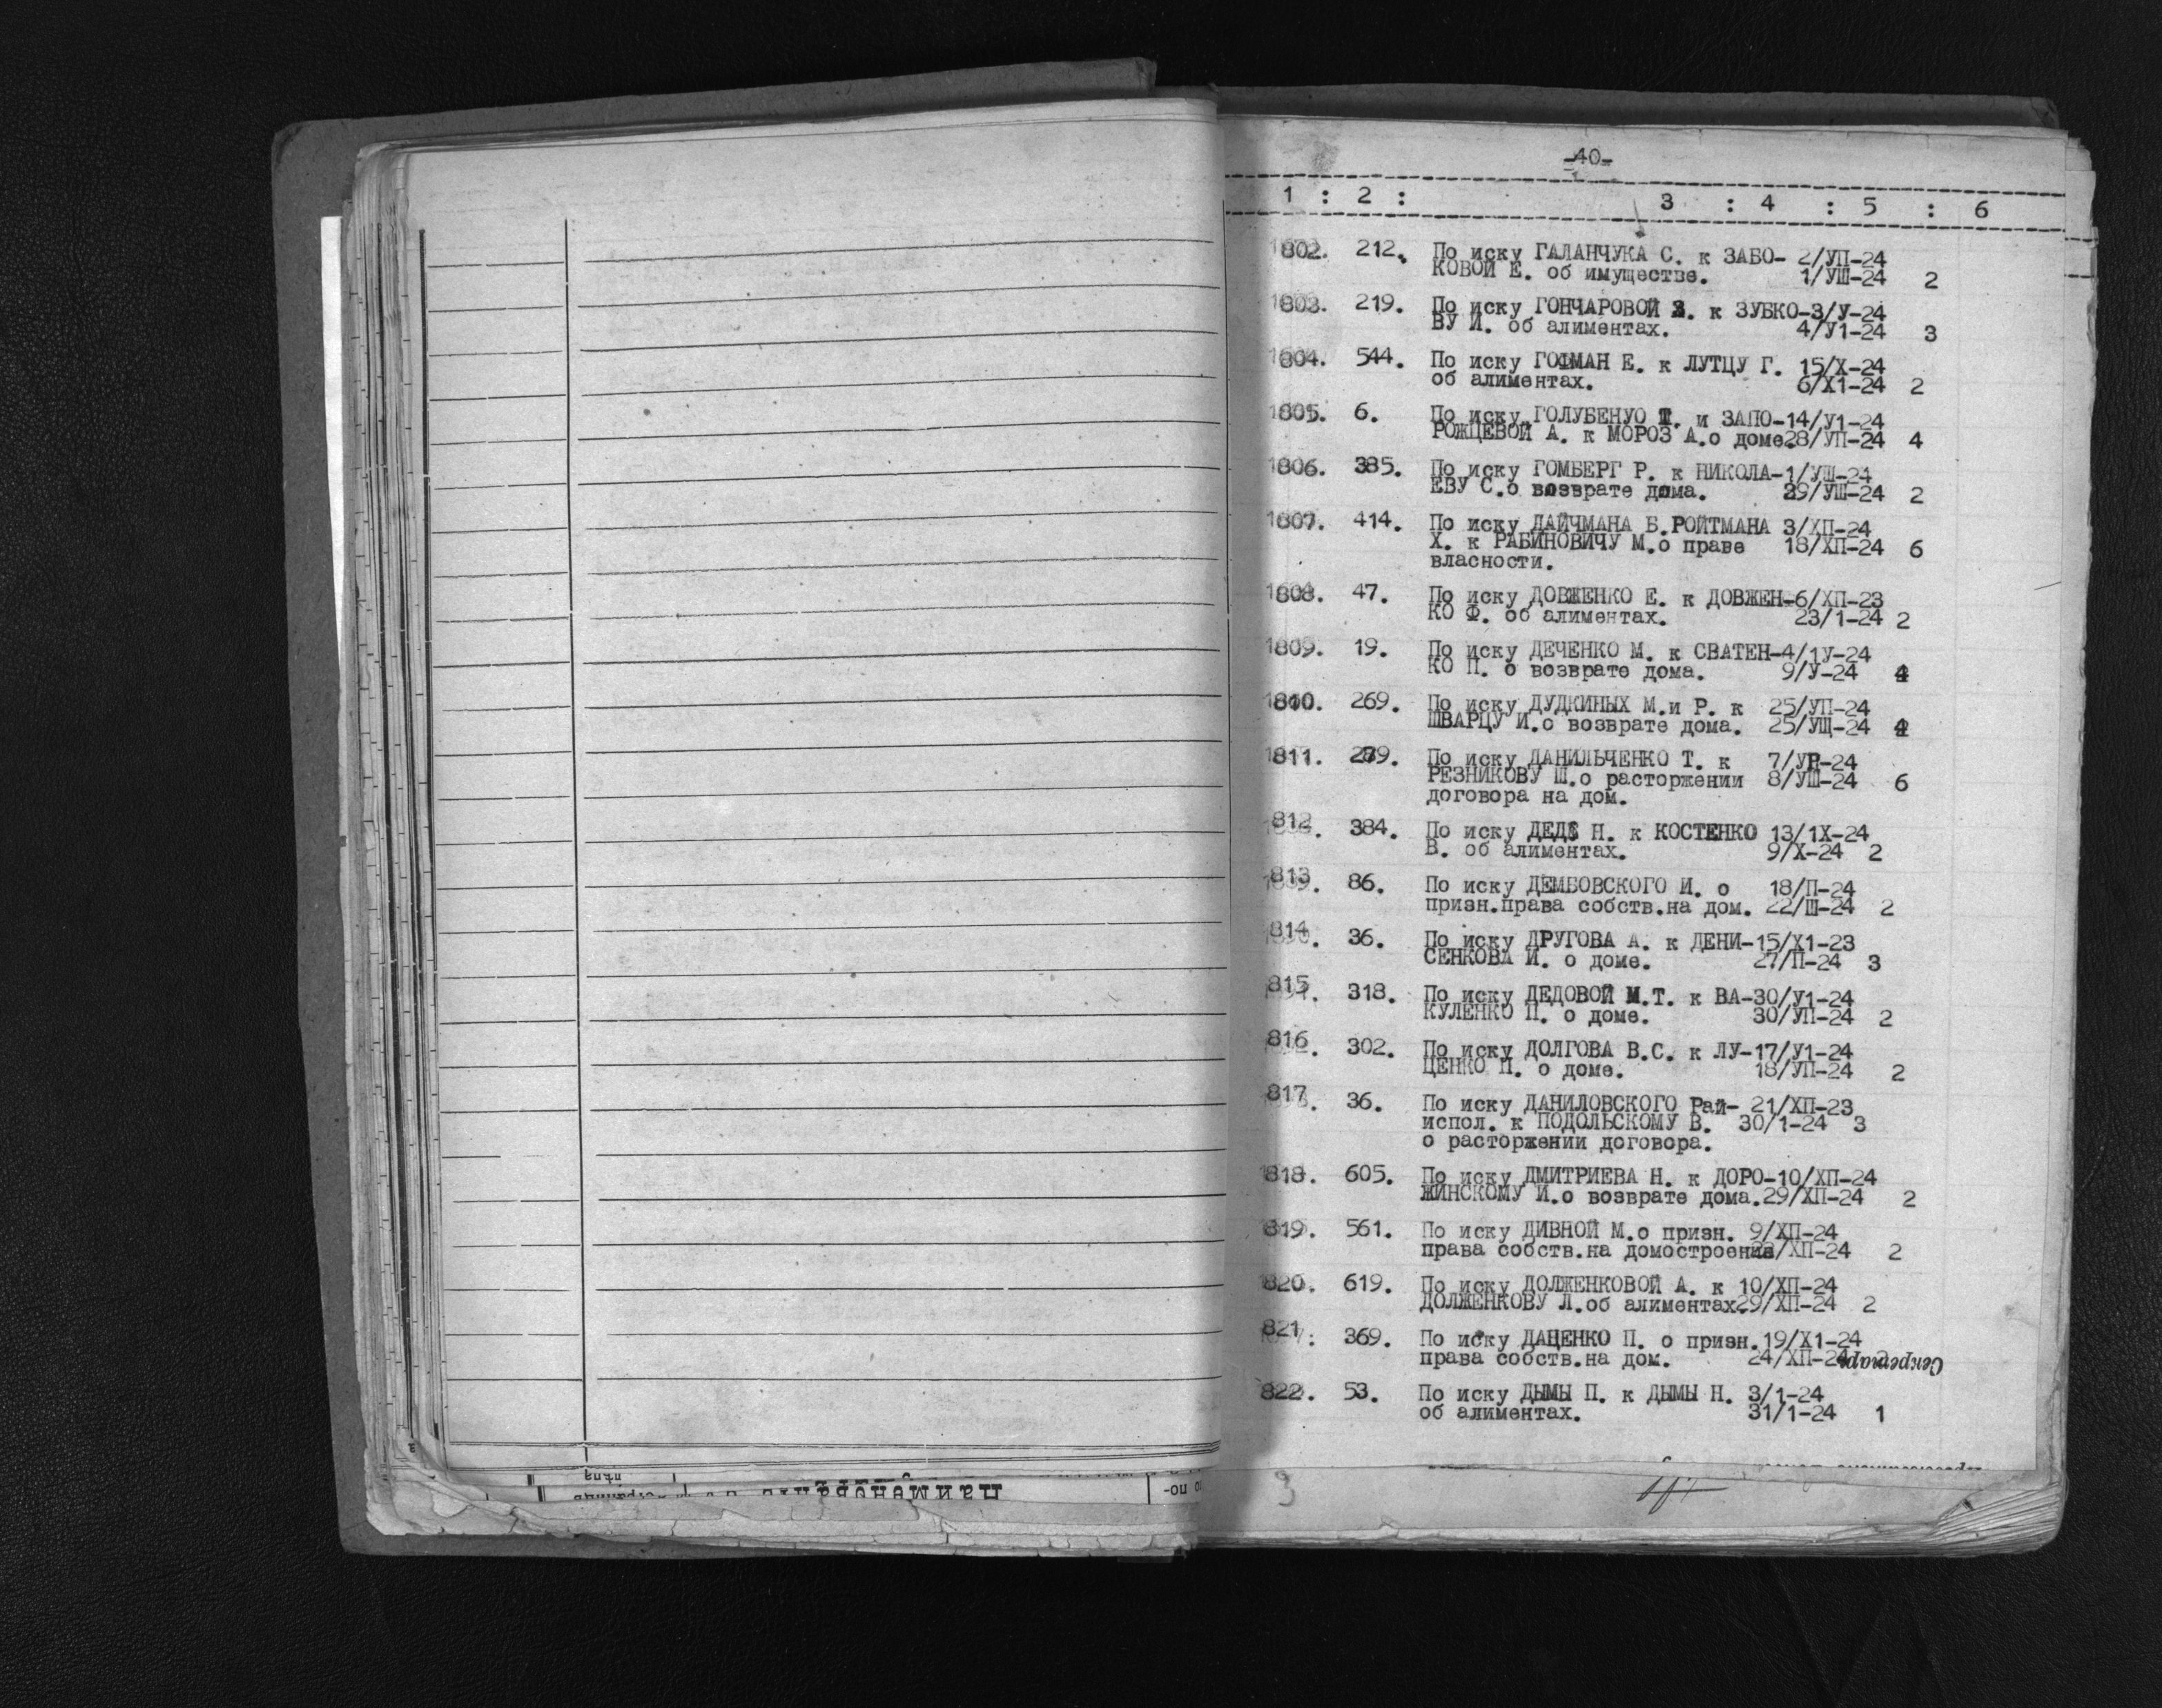 -40-
1 : 2 : 3 : 4 : 5 : 6
1802. 212. По иску ГАЛАНЧУКА С. к ЗАБО- 2/УП-24
КОВОЙ Е. об имуществе. 1/УШ-24 2
1803. 219. По иску ГОНЧАРОВОЙ З. к ЗУБКО-3/У-24
ВУ И. об алиментах. 4/У1-24 3
1804. 544. По иску ГОФМАН Е. к ЛУТЦУ Г. 15/Х-24
об алиментах. 6/Х1-24 2
1805. 6. По иску ГОЛУБЕНУО Т. и ЗАПО-14/У1-24
РОЖЦЕВОЙ А. к МОРОЗ А.о доме.28/УП-24 4
1806. 385. По иску ГОМБЕРГ Р. к НИКОЛА-1/УШ-24
ЕВУ С.о возврате дома. 29/УШ-24 2
1807. 414. По иску ДАЙЧМАНА Б.РОЙТМАНА 3/ХП-24
Х. к РАБИНОВИЧУ М.о праве 18/ХП-24 6
власности.
1808. 47. По иску ДОВЖЕНКО Е. к ДОВЖЕН-6/ХП-23
КО Ф. об алиментах. 23/1-24 2
1809. 19. По иску ДЕЧЕНКО М. к СВАТЕН-4/1У-24
КО П. о возврате дома. 9/У-24 4
1810. 269. По иску ДУДКИНЫХ М.и Р. к 25/УП-24
ШВАРЦУ И.о возврате дома. 25/УЩ-24 4
1811. По иску ДАНИЛЬЧЕНКО Т. к
РЕЗНИКОВУ Ш.о расторжении 8/УШ-24 6
договора на дом.
812. 384. По иску Н. к КОСТЕНКО 13/1Х-24
В. об алиментах. 9/Х-24 2
813. 86. По иску ДЕМБОВСКОГО И. о 18/П-24
призн.права собств.на дом. 22/Ш-24 2
814. 36. По иску ДРУГОВА А. к ДЕНИ-15/Х1-23
СЕНКОВА И. о доме. 27/П-24 3
815. 318. По иску ДЕДОВОЙ М.Т. к ВА-30/У1-24
КУЛЕНКО П. о доме. 30/УП-24 2
816. 302. По иску ДОЛГОВА В.С. к ЛУ-17/У1-24
ЦЕНКО П. о доме. 18/УП-24 2
817. 36. По иску ДАНИЛОВСКОГО Рай- 21/ХП-23
испол. к ПОДОЛЬСКОМУ В. 30/1-24 3
о расторжении договора.
818. 605. По иску ДМИТРИЕВА Н. к ДОРО-10/ХП-24
ЖИНСКОМУ И.о возврате дома.29/ХП-24 2
819. 561. По иску ДИВНОЙ М.о призн. 9/ХП-24
права собств.на домостроения /ХП-24 2
820. 619. По иску ДОЛЖЕНКОВОЙ А. к 10/ХП-24
ДОЛЖЕНКОВУ Л.об алиментах.29/ХП-24 2
821. 369. По иску ДАЦЕНКО П. о призн.19/Х1-24
права собств.на дом. 24/ХП-24 Секретарь
822. 53. По иску ДЫМЫ П. к ДЫМЫ Н. 3/1-24
об алиментах. 31/1-24 1